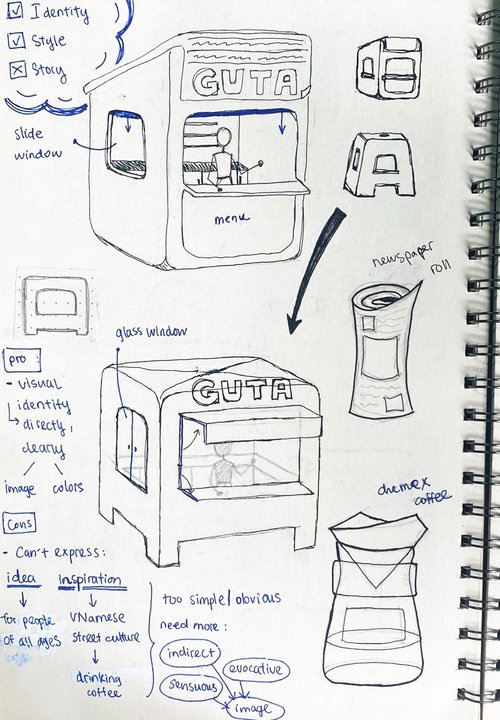 Identity
Style
Story
GUTA
slide
window
menu
newspaper
roll
glass window
GUTA
pro:
- visual
identity
directly,
clearly
image colors
chemex
coffee
Cons
- Can't express:
idea inspiration
for people
of all ages
VNamese
street culture
drinking
coffee
too simple/obvious
need more:
indirect
evocative
sensuous
image